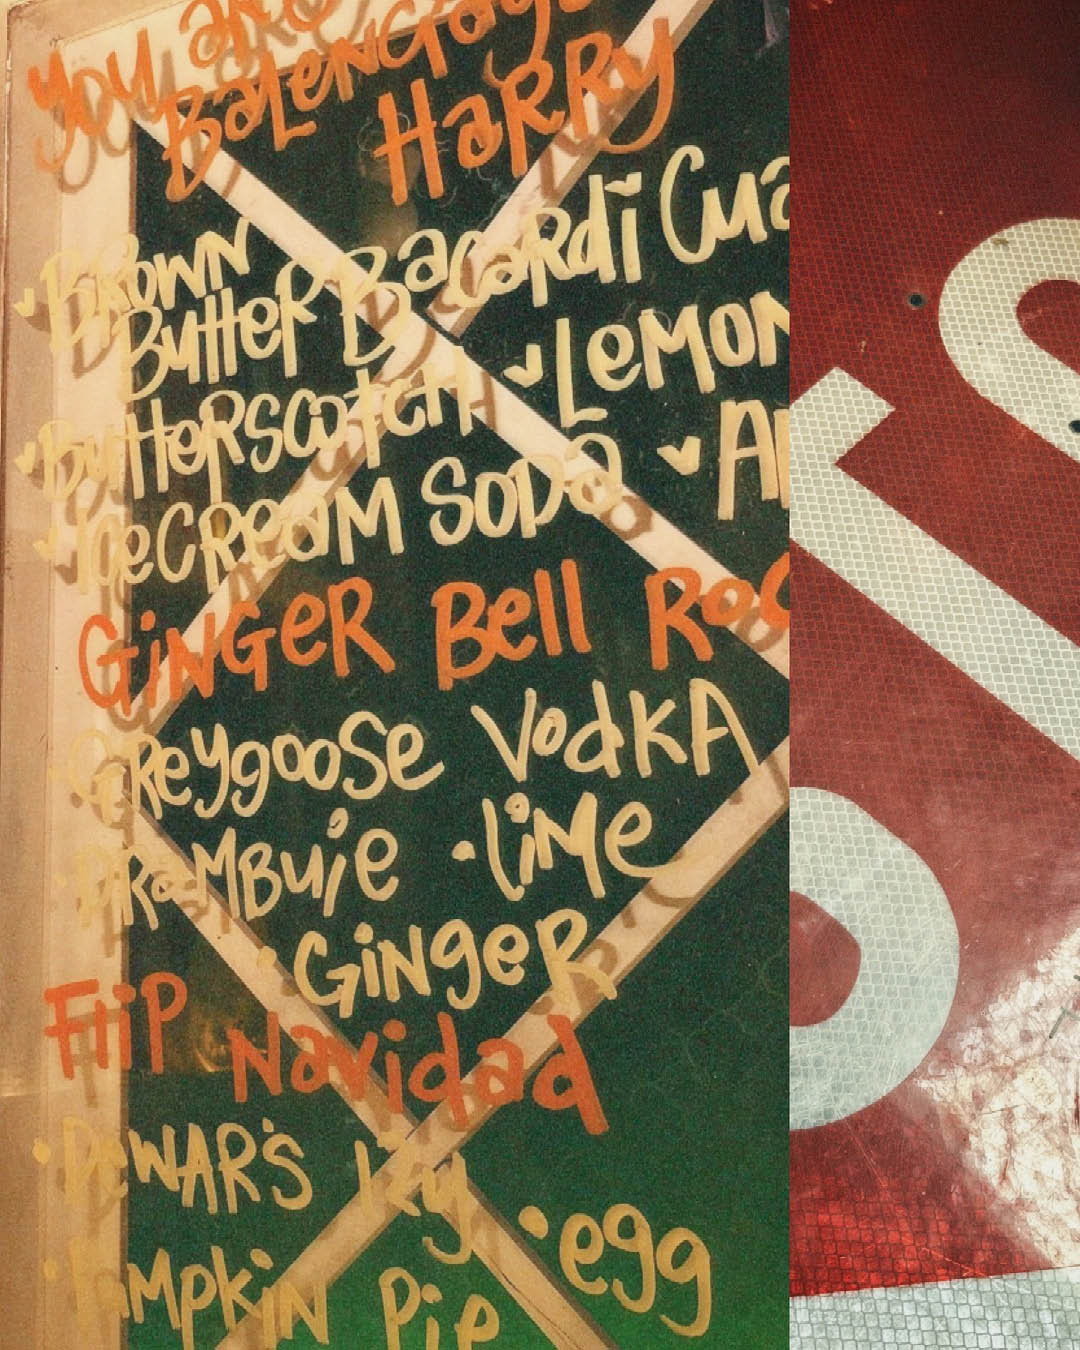 you are
Balenciaga
HARRY
Brown
Butter Bacardi Cua
Butterscotch
Lemon
Ice Cream Soda
GiNGeR Bell Roc
Greygoose Vodka
DRaMBuie
· Lime
· GiNgeR
Flip Navidad
· DeWAR's 12y
· Pumpkin Pie
· egg